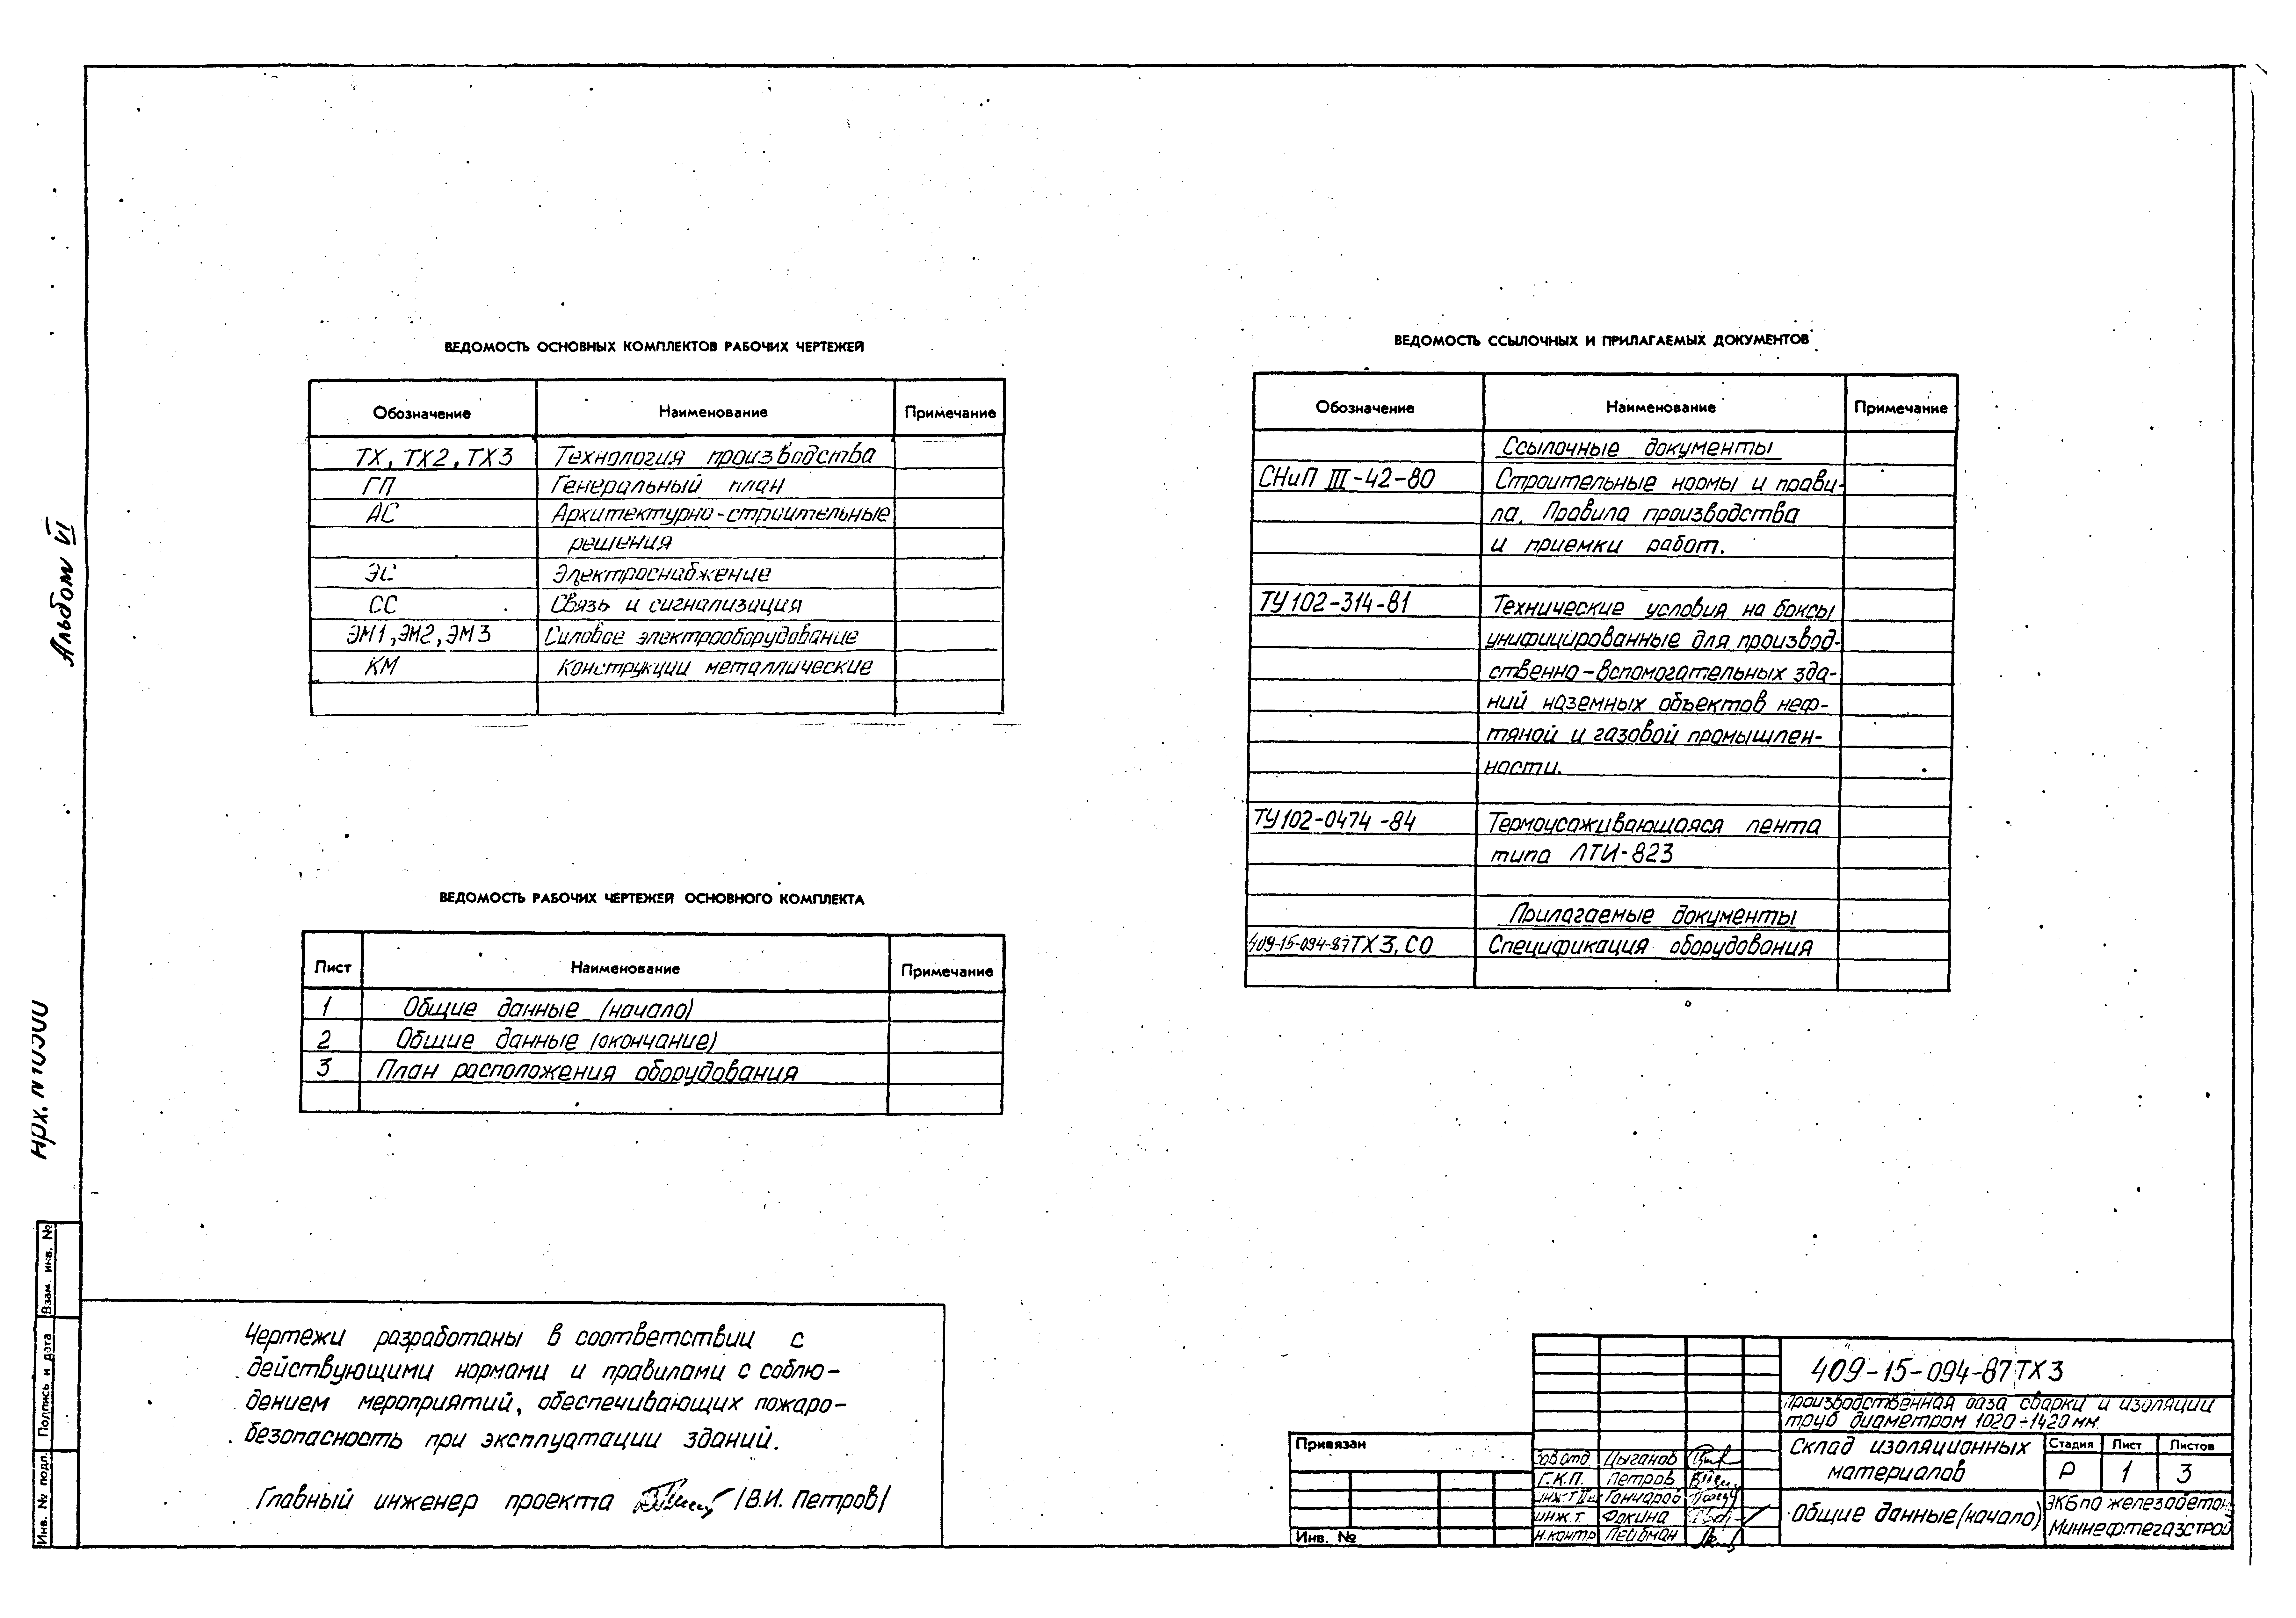 ВЕДОМОСТЬ ОСНОВНЫХ КОМПЛЕКТОВ РАБОЧИХ ЧЕРТЕЖЕЙ
Обозначение Наименование Примечание
ТХ, ТХ2, ТХ3 Технология производства
ГП Генеральный план
АС Архитектурно-строительные
решения
ЭС Электроснабжение
СС Связь и сигнализация
ЭМ1, ЭМ2, ЭМ3 Силовое электрооборудование
КМ Конструкции металлические
ВЕДОМОСТЬ РАБОЧИХ ЧЕРТЕЖЕЙ ОСНОВНОГО КОМПЛЕКТА
Лист Наименование Примечание
1 Общие данные (начало)
2 Общие данные (окончание)
3 План расположения оборудования
ВЕДОМОСТЬ ССЫЛОЧНЫХ И ПРИЛАГАЕМЫХ ДОКУМЕНТОВ
Обозначение Наименование Примечание
Ссылочные документы
СНиП III-42-80 Строительные нормы и прави-
ла. Правила производства
и приемки работ.
ТУ 102-314-81 Технические условия на боксы
унифицированные для производ-
ственно-вспомогательных зда-
ний наземных объектов неф-
тяной и газовой промышлен-
ности.
ТУ 102-0474-84 Термоусаживающаяся лента
типа ЛТИ-823
Прилагаемые документы
409-15-094-87 ТХ3, СО Спецификация оборудования
Альбом VI
Арх. №
Взам. инв. №
Подпись и дата
Инв. № подл.
Чертежи разработаны в соответствии с
действующими нормами и правилами с соблю-
дением мероприятий, обеспечивающих пожаро-
безопасность при эксплуатации зданий.
Главный инженер проекта /В.И. Петров/
Привязан
Инв. №
Зав отд Цыганов
Г.К.П. Петров
Гончаров
инж. т. Фокина
н.контр Лейбман
409-15-094-87 ТХ3
Производственная база сварки и изоляции
труб диаметром 1020÷1420 мм.
Склад изоляционных
материалов
Стадия Лист Листов
Р 1 3
Общие данные (начало)
ЭКБ по железобетону
Миннефтегазстрой